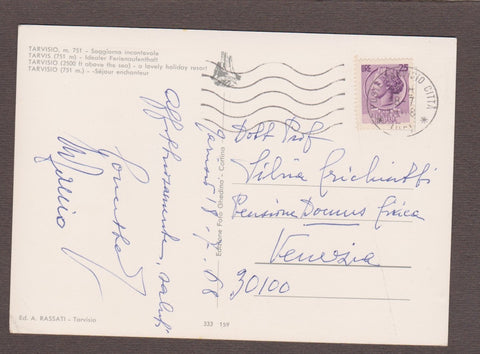 TARVISIO, m. 751 - Soggiorno incantevole
TARVIS (751 m) - Idealer Ferienaufenthalt
TARVISIO (2500 ft above the sea) - a lovely holiday resort
TARVISIO (751 m.) - Séjour enchanteur
Affettuosamente, saluti
18-7-68
Edizione Foto Ghedina - Cortina
LIRE 25
CITTÀ
Dott Prof
Silvia
Pensione Domus Civica
Venezia
30100
Ed. A. RASSATI - Tarvisio
333 159